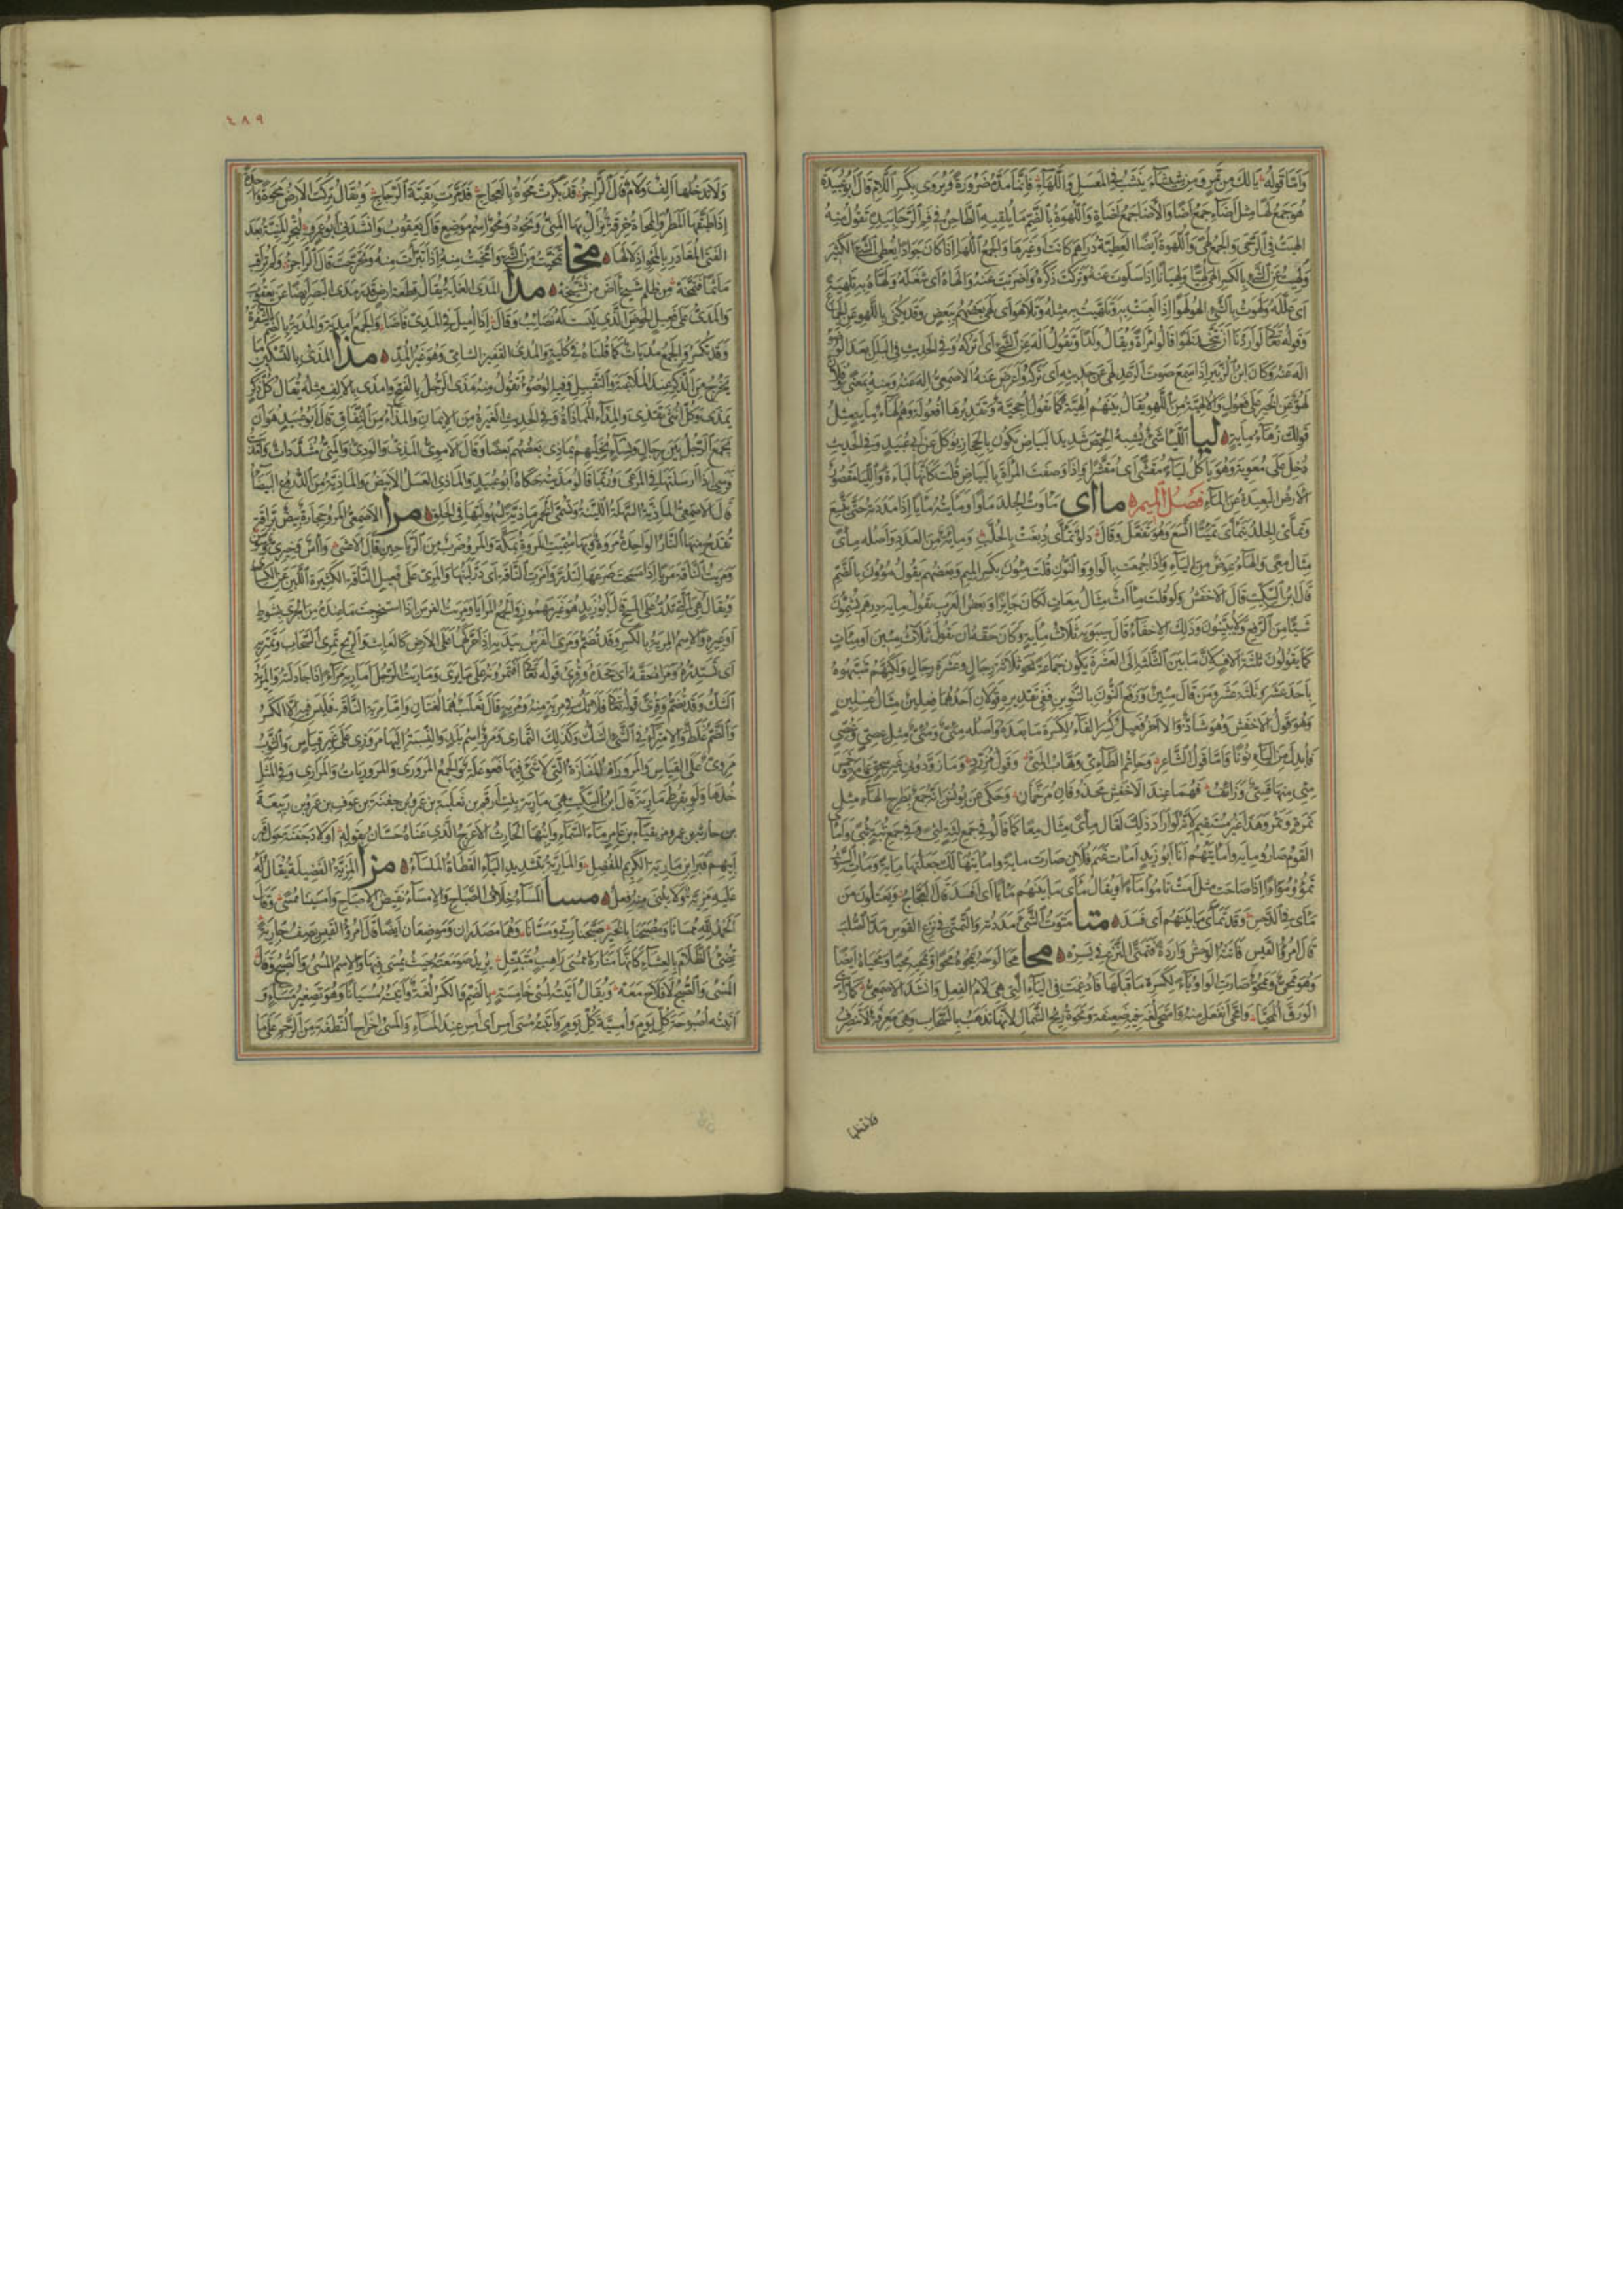 وَاَمَّا قَولُهُ يَالَكَ مِن تَمرٍ وَمِن شِيشَاءِ يَنشَبُ فِي المَسعَلِ وَاللَّهَاءِ فَاِنَّمَا مَدَّهُ ضَرُورَةً وَيُروى بِكَسرِ اللَّامِ قَالَ اَبُو عُبَيدَة
هُوَ جَمعُ لَهًا مِثلُ اَضَاءٍ جَمعُ اَضًا وَالاَضَا جَمعُ اَضَاةٍ وَاللُّهوَةُ بِالضَّمِّ مَا يُلقِيهِ الطَّاحِنُ فِي فَمِ الرَّحَا بِيَدِهِ تَقُولُ مِنهُ
اَلهَيتُ فِي الرَّحَى وَالجَمعُ لُهًى وَاللُّهوَةُ اَيضًا العَطِيَّةُ دَرَاهِمَ كَانَت اَو غَيرَهَا وَالجَمعُ اللُّهَا اِذَا كَانَ جَوَادًا يُعطِي الشَّيءَ الكَثِيرَ
وَلَهِيتُ عَنِ الشَّيءِ بِالكَسرِ اَلهَى لُهِيًّا وَلُهيَانًا اِذَا سَلَوتَ عَنهُ وَتَرَكتَ ذِكرَهُ وَاَضرَبتَ عَنهُ وَاَلهَاهُ اَى شَغَلَهُ وَلَهَّاهُ بِهِ تَلهِيَةً
اَى عَلَّلَهُ وَلَهَوتُ بِالشَّيءِ اَلهُو لَهوًا اِذَا لَعِبتَ بِهِ وَتَلَهَّيتُ بِهِ مِثلُهُ وَتَلَاهَوا اَى لَهَى بَعضُهُم بِبَعضٍ وَقَد يُكنَى بِاللَّهوِ عَنِ الجِمَاعِ
وَقَولُهُ تَعَالَى لَو اَرَدنَا اَن نَتَّخِذَ لَهوًا قَالُوا امرَاَةً وَيُقَالُ وَلَدًا وَتَقُولُ اِلهَ عَنِ الشَّيءِ اَى اُترُكهُ وَفِي الحَدِيثِ فِي البَلَلِ بَعدَ الوُضُوءِ
اِلهَ عَنهُ وَكَانَ ابنُ الزُّبَيرِ اِذَا سَمِعَ صَوتَ الرَّعدِ لَهِىَ عَن حَدِيثِهِ اَى تَرَكَهُ وَاَعرَضَ عَنهُ الاَصمَعِيُّ اِلهَ عَنهُ وَمِنهُ بِمَعنًى وَفُلَانٌ
لَهُوٌّ عَنِ الخَيرِ عَلَى فَعُولٍ وَالاُلهِيَّةُ مِنَ اللَّهوِ يُقَالُ بَينَهُم اُلهِيَّةٌ كَمَا تَقُولُ اُحجِيَّةٌ وَتَقدِيرُهَا اُفعُولَةٌ وَهُم لُهَاءُ مِايَةٍ مِثلُ
قَولِكَ زُهَاءُ مِايَةٍ ليا اَللِّيَاءُ شَىءٌ يُشبِهُ الحِمَّصَ شَدِيدُ البَيَاضِ يَكُونُ بِالحِجَازِ يُوكَلُ عَن اَبِي عُبَيدٍ وَفِي الحَدِيثِ
دُخِلَ عَلَى مُعَوِيَةَ وَهُوَ يَاكُلُ لِيَاءً مُقَشًّى اَى مُقَشَّرًا وَاِذَا وَصَفتَ المَراَةَ بِالبَيَاضِ قُلتَ كَاَنَّهَا لِيَاءَةٌ وَاللِّيَا مَقصُورٌ
الاَرضُ البَعِيدَةُ عَنِ المَاءِ فَصلُ المِيمِ مااى مَاَوتُ الجِلدَ مَاوًا وَمَاَيتُهُ مَايًا اِذَا مَدَدتَهُ حَتَّى يَتَّسِعَ
وَتَمَاَّى الجِلدُ يَتَمَاَّى تَمَئِّيًا اتَّسَعَ وَهُوَ تَفَعَّلَ وَقَالَ دَلوٌ تَمَاَّى دُبِغَت بِالحُلَّبِ وَمِايَةٌ مِنَ العَدَدِ وَاَصلُهُ مِاًى
مِثَالُ مِعًى وَالهَاءُ عِوَضٌ مِنَ اليَاءِ وَاِذَا جَمَعتَ بِالوَاوِ وَالنُّونِ قُلتَ مِئُونَ بِكَسرِ المِيمِ وَبَعضُهُم يَقُولُ مُؤُونَ بِالضَّمِّ
قَالَ ابنُ السِّكِّيتِ قَالَ الاَخفَشُ وَلَو قُلتَ مِاَاتٌ مِثَالُ مِعَاتٍ لَكَانَ جَايِزًا وَبَعضُ العَرَبِ يَقُولُ مِايَة دِرهَمٍ يُشِمُّونَ
شَيئًا مِنَ الرَّفعِ وَلَا يُبَيِّنُونَ وَذَلِكَ الاِخفَاءُ قَالَ سِيبَوَيهِ ثَلَاثُ مِايَةٍ وَكَانَ حَقُّهُ اَن يَقُولَ ثَلَاثُ مِئِينَ اَو مِئَاتٍ
كَمَا يَقُولُونَ ثَلثَةُ اَلَافٍ لِاَنَّ مَا بَينَ الثَّلثَةِ اِلَى العَشَرَةِ يَكُونُ جَمَاعَةً نَحوَ ثَلَاثَةِ رِجَالٍ وَعَشَرَةِ رِجَالٍ وَلَكِنَّهُم شَبَّهُوهُ
بِاَحَدَ عَشَرَ وَثَلثَةَ عَشَرَ وَمَن قَالَ مِئِينٌ وَرَفَعَ النُّونَ بِالتَّنوِينِ فَفِي تَقدِيرِهِ قَولَانِ اَحَدُهُمَا فِعلِينٌ مِثَالُ غِسلِينٍ
وَهُوَ قَولُ الاَخفَشِ وَهُوَ شَاذٌّ وَالاَخَرُ فِعِيلٌ كُسِرَ الفَاءُ لِكَسرَةِ مَا بَعدَهُ وَاَصلُهُ مِئِىٌّ وَمُئِىٌّ مِثلُ عِصِيٍّ وَعُصِيٍّ
فَاُبدِلَ مِنَ اليَاءِ نُونًا وَاَمَّا قَولُ الشَّاعِرِ وَحَاتِمُ الطَّائِيُّ وَهَّابُ المِئِي وَقَولُ مُزَرِّدٍ وَمَا زَوَّدُونِي غَيرَ سَحقِ عِمَامَةٍ وَخَمسِ
مِئِى مِنهَا قَسِىٌّ وَزَائِفُ فَهُمَا عِندَ الاَخفَشِ مَحذُوفَانِ مُرَخَّمَانِ وَحُكِىَ عَن يُونُسَ اَنَّهُ جَمعٌ بِطَرحِ الهَاءِ مِثلُ
تَمرَةٍ وَتَمرٍ وَهَذَا غَيرُ مُستَقِيمٍ لِاَنَّهُ لَو اَرَادَ ذَلِكَ لَقَالَ مِاًى مِثَالُ مِعًا كَمَا قَالُوا فِي جَمعِ لِثَةٍ لِثًى وَفِي جَمعِ ثُبَةٍ ثُبًى وَاَماَى
القَومُ صَارُوا مِايَةً وَاَمَايتُهُم اَنَا اَبُو زَيدٍ اَماَت غَنَمُ فُلَانٍ صَارَت مِايَةً وَاَمَايتُهَا لَكَ جَعَلتُهَا مِايَةً
مَاَى فِي الدَّحسِ وَقَد تَمَاَّى مَا بَينَهُم اَى فَسَدَ متا مَتَوتُ الشَّىءَ مَدَدتُهُ وَالتَّمَتِّي فِي نَزعِ القَوسِ مَدُّ الصُّلبِ
قَالَ امرُؤُ القَيسِ فَاَتَتهُ الوَحشُ وَارِدَةً فَتَمَتَّى النَّزعَ فِي يَسَرِه محا مَحَا لَوحَهُ يَمحُوهُ مَحوًا وَيَمحِيهِ مَحيًا وَيَمحَاهُ اَيضًا
وَهُوَ مَمحُوٌّ وَمَمحِىٌّ صَارَتِ الوَاوُ يَاءً لِكَسرَةِ مَا قَبلَهَا فَاُدغِمَت فِي اليَاءِ الَّتِي هِيَ لَامُ الفِعلِ وَاَنشَدَ الاَصمَعِيُّ كَمَا رَاَيتَ
الوَرَقَ المَمحِيَّا وَامَّحَى انفَعَلَ مِنهُ وَامتَحَى لُغَةٌ فِيهِ ضَعِيفَة وَمَحوَةُ رِيحُ الشَّمَالِ لِاَنَّهَا تَذهَبُ بِالسَّحَابِ وَهِيَ مَعرِفَةٌ لَا تَنصَرِفُ
٤٨٩
وَلَا تَدخُلُهَا اَلِفٌ وَلَامٌ قَالَ الرَّاجِزُ قَد بَكَرَت مَحوَةُ بِالعَجَاجِ فَدَمَّرَت بَقِيَّةَ الرَّجَاجِ وَيُقَالُ تَرَكتُ الاَرضَ مَحوَةً وَاحِدَةً
اِذَا طَبَّقَهَا المَطَرُ وَالمِمحَاةُ خِرقَةٌ يُزَالُ بِهَا المَنِيُّ وَنَحوُهُ وَمَحوٌ اسمُ مَوضِعٍ قَالَ يَعقُوبُ وَاَنشَدَنِي اَبُو عَمرٍو لِتَجرِ المَنِيَّةُ بَعدَ
الفَتَى المُغَادَرِ بِالمَحوِ اِذلَالَهَا مخا تَمَخَّيتُ مِنَ الشَّيءِ وَامَّخَيتُ مِنهُ اِذَا تَبَرَّاتَ مِنهُ وَتَحَرَّجتَ قَالَ الرَّاجِزُ وَلَم تُرَاقِب
مَاثَمًا فَتَمَّخِهْ مِن ظُلمِ شَيخٍ اَضَّ مِن تَشَيُّخِه مدا المَدَى الغَايَةُ يُقَالُ قِطعَةُ اَرضٍ قَدرُ مَدَى البَصَرِ اَيضًا عَن يَعقُوبَ
وَقَد تُكسَرُ وَالجَمعُ مُديَاتٌ كَمَا قُلنَاهُ فِي كُليَةٍ وَالمُدىُ القَفِيزُ الشَّامِيُّ وَهُوَ غَيرُ المُدِّ مذا المَذىُ بِالتَّسكِينِ مَا
يَخرُجُ مِنَ الذَّكَرِ عِندَ المُلَاعَبَةِ وَالتَّقبِيلِ وَفِيهِ الوُضُوءُ تَقُولُ مِنهُ مَذَى الرَّجُلُ بِالفَتحِ وَاَمذَى بِالاَلِفِ مِثلُهُ يُقَالُ كُلُّ ذَكَرٍ
يَمذِي وَكُلُّ اُنثَى تَقذِي وَالمِذَاءُ المُمَاذَاةُ وَفِي الحَدِيثِ الغَيرَةُ مِنَ الاِيمَانِ وَالمِذَاءُ مِنَ النِّفَاقِ قَالَ اَبُو عُبَيدٍ هُوَ اَن
يَجمَعَ الرَّجُلُ بَينَ رِجَالٍ وَنِسَاءٍ يُخَلِّيهِم يُمَاذِي بَعضُهُم بَعضًا وَقَالَ الاُمَوِيُّ المَذِيُّ وَالوَدِيُّ وَالمَنِيُّ مُشَدَّدَاتٌ وَاَمذَيتُ
فَرَسِى اِذَا اَرسَلتَهَا فِي المَرعَى وَرُبَّمَا قَالُوا مَذَيتُهُ حَكَاهُ اَبُو عُبَيدٍ وَالمَاذِيُّ العَسَلُ الاَبيَضُ وَالمَاذِيَّةُ مِنَ الدُّرُوعِ البَيضَاءُ
قَالَ الاَصمَعِيُّ المَاذِيَّةُ السَّهلَةُ اللَّيِّنَةُ وَتُسَمَّى الخَمرُ مَاذِيَّةً لِسُهُولَتِهَا فِي الحَلقِ مرا الاَصمَعِيُّ المَروُ حِجَارَةٌ بِيضٌ بَرَّاقَةٌ
تُقدَحُ مِنهَا النَّارُ الوَاحِدَةُ مَروَةٌ وَبِهَا سُمِّيَتِ المَروَةُ بِمَكَّةَ وَالمَروُ ضَربٌ مِنَ الرَّيَاحِينِ قَالَ الاَعشَى وَاٰسٌ وَخِيرِيٌّ وَمَروٌ
وَمَرَيتُ النَّاقَةَ مَريًا اِذَا مَسَحتَ ضَرعَهَا لِتَدُرَّ وَاَمرَتِ النَّاقَةُ اَى دَرَّ لَبَنُهَا وَالمَرِيُّ عَلَى فَعِيلٍ النَّاقَةُ الكَثِيرَةُ اللَّبَنِ عَنِ الكِسَائِيِّ
وَيُقَالُ هِيَ الَّتِي تَدُرُّ عَلَى المَسحِ قَالَ اَبُو زَيدٍ هُوَ غَيرُ مَهمُوزٍ وَالجَمعُ المَرَايَا وَمَرَيتُ الفَرَسَ اِذَا استَخرَجتَ مَا عِندَهُ مِنَ الجَرىِ بِسَوطٍ
اَو غَيرِهِ وَالاِسمُ المِريَةُ بِالكَسرِ وَقَد تُضَمُّ وَمَرَى الفَرَسُ بِيَدَيهِ اِذَا حَرَّكَهُمَا عَلَى الاَرضِ كَالعَابِثِ وَالرِّيحُ تَمرِي السَّحَابَ وَتَمتَرِيهِ
اَى تَستَدِرُّهُ وَمَرَاهُ حَقَّهُ اَى جَحَدَهُ وَقُرِئَ قَولُهُ تَعَالَى اَفَتَمرُونَهُ عَلَى مَا يَرَى وَمَارَيتُ الرَّجُلَ اُمَارِيهِ مِرَاءً اِذَا جَادَلتَهُ وَالمِريَةُ
الشَّكُّ وَقَد تُضَمُّ وَقُرِئَ قَولُهُ تَعَالَى فَلَا تَكُ فِي مِريَةٍ مِنهُ وَمُريَةٍ قَالَ ثَعلَبٌ هُمَا لُغَتَانِ وَاَمَّا مِريَةُ النَّاقَةِ فَلَيسَ فِيهِ اِلَّا الكَسرُ
وَالضَّمُّ غَلَطٌ وَالاِمتِرَاءُ فِي الشَّيءِ الشَّكُّ وَكَذَلِكَ التَّمَارِي وَمَروٌ اسمُ بَلَدٍ وَالنِّسبَةُ اِلَيهَا مَروَزِيٌّ عَلَى غَيرِ قِيَاسٍ وَالثَّوبُ
مَروِيٌّ عَلَى القِيَاسِ وَالمَرَورَاةُ المَفَازَةُ الَّتِي لَا شَيءَ فِيهَا فَعَوعَلَةٌ وَالجَمعُ المَرَورَى وَالمَرَورَيَاتُ وَالمَرَارِي وَفِي المَثَلِ
خُذهَا وَلَو بِقُرطَي مَارِيَةَ قَالَ ابنُ السِّكِّيتِ هِيَ مَارِيَةُ بِنتُ اَرقَمَ بنِ ثَعلَبَةَ بنِ عَمرِو بنِ جَفنَةَ بنِ عَوفِ بنِ عَمرِو بنِ رَبِيعَةَ
بنِ حَارِثَةَ بنِ عَمرٍو مُزَيقِيَاءَ بنِ عَامِرٍ مَاءِ السَّمَاءِ وَابنُهَا الحَارِثُ الاَعرَجُ الَّذِي عَنَاهُ حَسَّانُ بِقَولِهِ اَولَادُ جَفنَةَ حَولَ قَبرِ
اَبِيهِم قَبرِ ابنِ مَارِيَةَ الكَرِيمِ المُفضِلِ وَالمَارِيَّةُ بِتَشدِيدِ اليَاءِ القَطَاةُ المَلسَاءُ مزا المَزِيَّةُ الفَضِيلَةُ يُقَالُ لَهُ
عَلَيهِ مَزِيَّةٌ وَلَا يُبنَى مِنهُ فِعلٌ مسا المَسَاءُ خِلَافُ الصَّبَاحِ وَالاِمسَاءُ نَقِيضُ الاِصبَاحِ وَاَمسَينَا مُمسًى وَقَالَ
اَلحَمدُ لِلَّهِ مُمسَانَا وَمُصبَحَنَا بِالخَيرِ صَبَّحَنَا رَبِّي وَمَسَّانَا وَهُمَا مَصدَرَانِ وَمَوضِعَانِ اَيضًا قَالَ امرُؤُ القَيسِ يَصِفُ جَارِيَةً
تُضِيءُ الظَّلَامَ بِالعِشَاءِ كَاَنَّهَا مَنَارَةُ مُمسَى رَاهِبٍ مُتَبَتِّلِ يُرِيدُ صَومَعَتَهُ حَيثُ يُمسِي فِيهَا وَالاِسمُ المُسىُ وَالصُّبحُ وَقَالَ
المُسىُ وَالصُّبحُ لَا فَلَاحَ مَعَه وَيُقَالُ اَتَيتُهُ لِمُسىِ خَامِسَةٍ بِالضَّمِّ وَالكَسرُ لُغَةٌ وَاَتَيتُهُ مُسَيَّانًا وَهُوَ تَصغِيرُ مَسَاءٍ وَ
اَتَيتُهُ اُصبُوحَةَ كُلِّ يَومٍ وَاُمسِيَّةَ كُلِّ يَومٍ وَاَتَيتُهُ مُسىَ اَمسِ اَى اَمسِ عِندَ المَسَاءِ وَالمَسىُ اِخرَاجُ النُّطفَةِ مِنَ الرَّحِمِ عَلَى مَا